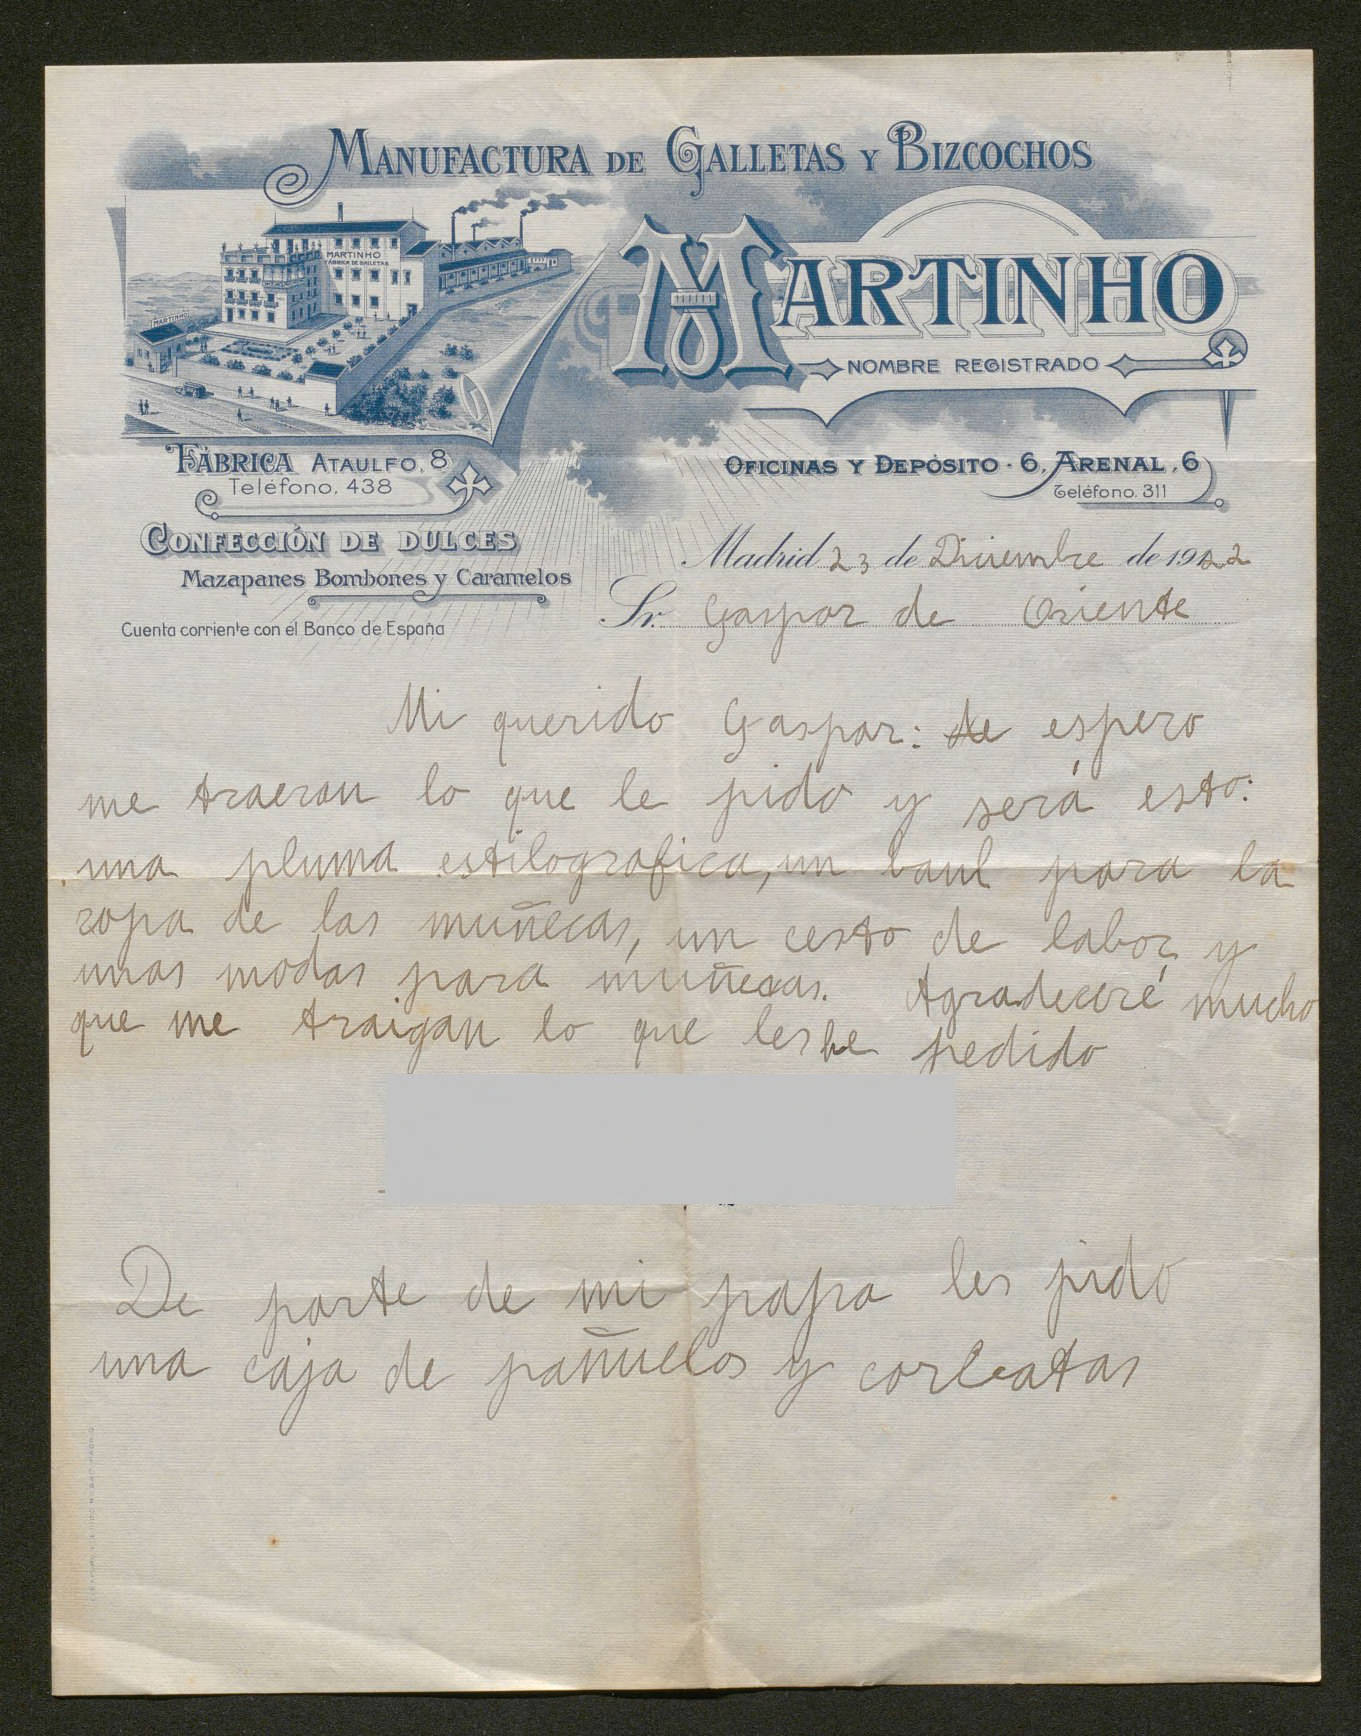 MANUFACTURA DE GALLETAS Y BIZCOCHOS
MARTINHO
FÁBRICA DE GALLETAS
MARTINHO
MARTINHO
NOMBRE REGISTRADO
FÁBRICA ATAULFO, 8
Teléfono, 438
OFICINAS Y DEPÓSITO · 6, ARENAL, 6
Teléfono. 311
CONFECCIÓN DE DULCES
Mazapanes Bombones y Caramelos
Cuenta corriente con el Banco de España
Madrid 23 de Diciembre de 1922
Sr. Gaspar de Oriente
Mi querido Gaspar: espero
me traeran lo que le pido y será esto:
una pluma estilografica, un baul para la
ropa de las muñecas, un cesto de labor y
unas modas para muñecas. Agradeceré mucho
que me traigan lo que les he pedido
De parte de mi papa les pido
una caja de pañuelos y corbatas